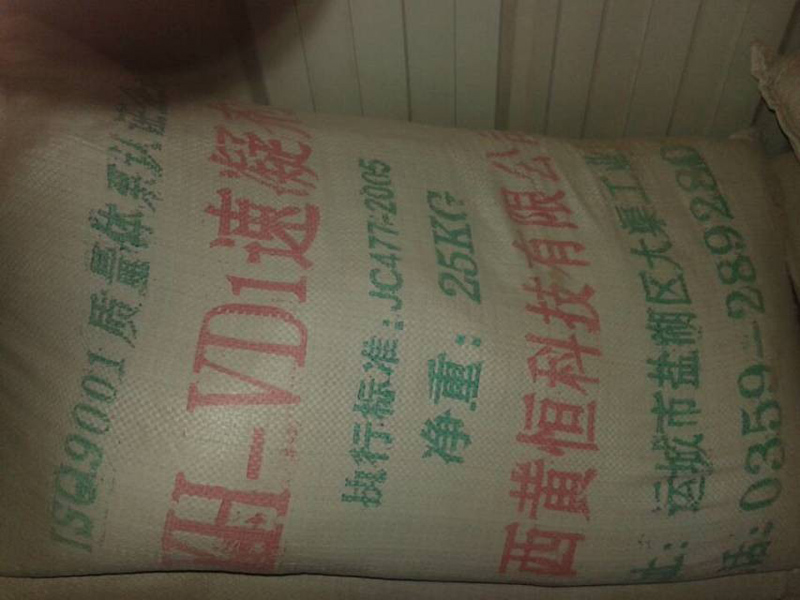 ISO9001质量体系认证
H-VD1速凝
执行标准:JC477-2005
净重:25KG
西黄恒科技有限公
址:运城市盐湖区大渠工业
话:0359-289280